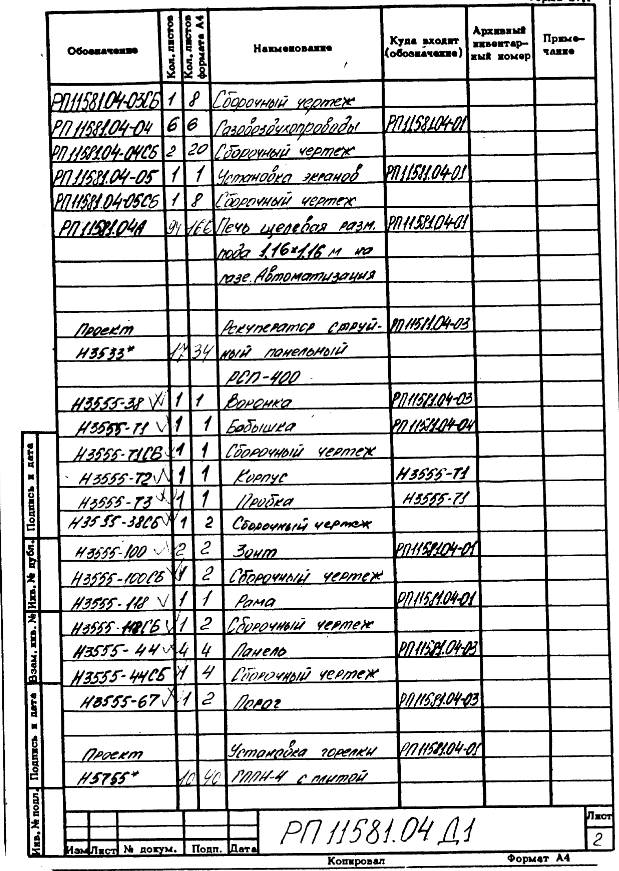 Обозначение Кол. листов Кол. листов формата А4 Наименование Куда входит (обозначение) Архивный инвентарный номер Примечание
РП11581.04-03СБ 1 8 Сборочный чертеж
РП11581.04-04 6 6 Газовоздухопроводы РП11581.04-01
РП11581.04-04СБ 2 20 Сборочный чертеж
РП11581.04-05 1 1 Установка экранов РП11581.04-01
РП11581.04-05СБ 1 8 Сборочный чертеж
РП11581.04А 94 166 Печь щелевая разм. РП11581.04-01
пода 1,16×1,16 м на
газе. Автоматизация
Проект Рекуператор струй- РП11581.04-03
Н3533* 17 34 ный панельный
РСП-400
Н3555-38 1 1 Воронка РП11581.04-03
Н3555-Т1 1 1 Бобышка РП11581.04-04
Н3555-Т1СБ 1 1 Сборочный чертеж
Н3555-Т2 1 1 Корпус Н3555-Т1
Н3555-Т3 1 1 Пробка Н3555-Т1
Н3555-38СБ 1 2 Сборочный чертеж
Н3555-100 2 2 Зонт РП11581.04-01
Н3555-100СБ 1 2 Сборочный чертеж
Н3555-118 1 1 Рама РП11581.04-01
Н3555-118СБ 1 2 Сборочный чертеж
Н3555-44 4 4 Панель РП11581.04-03
Н3555-44СБ 1 4 Сборочный чертеж
Н3555-67 1 2 Порог РП11581.04-03
Проект Установка горелки РП11581.04-01
Н5755* 10 40 ГППН-4 с плитой
Подпись и дата
Инв. № публ.
Взам. инв. №
Подпись и дата
Инв. № подл.
Изм Лист № докум. Подп. Дата
РП11581.04 Д1
Лист
2
Копировал Формат А4